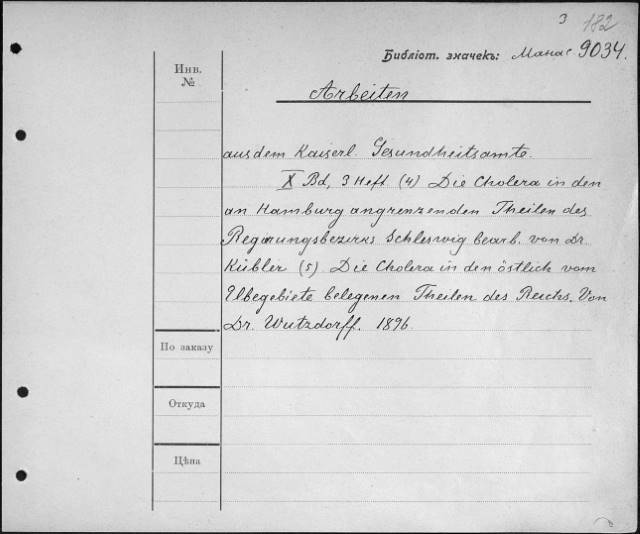 3 182
Библіот. значекъ: Манас 9034.
Инв.
№
Arbeiten
aus dem Kaiserl. Gesundheitsamte.
X Bd, 3 Heft (4) Die Cholera in den
an Hamburg angrenzenden Theilen des
Regirungsbezirks Schleswig bearb. von Dr.
Kübler (5) Die Cholera in den östlich vom
Elbegebiete belegenen Theilen des Reichs. Von
Dr. Wutzdorff. 1896.
По заказу
Откуда
Цѣна